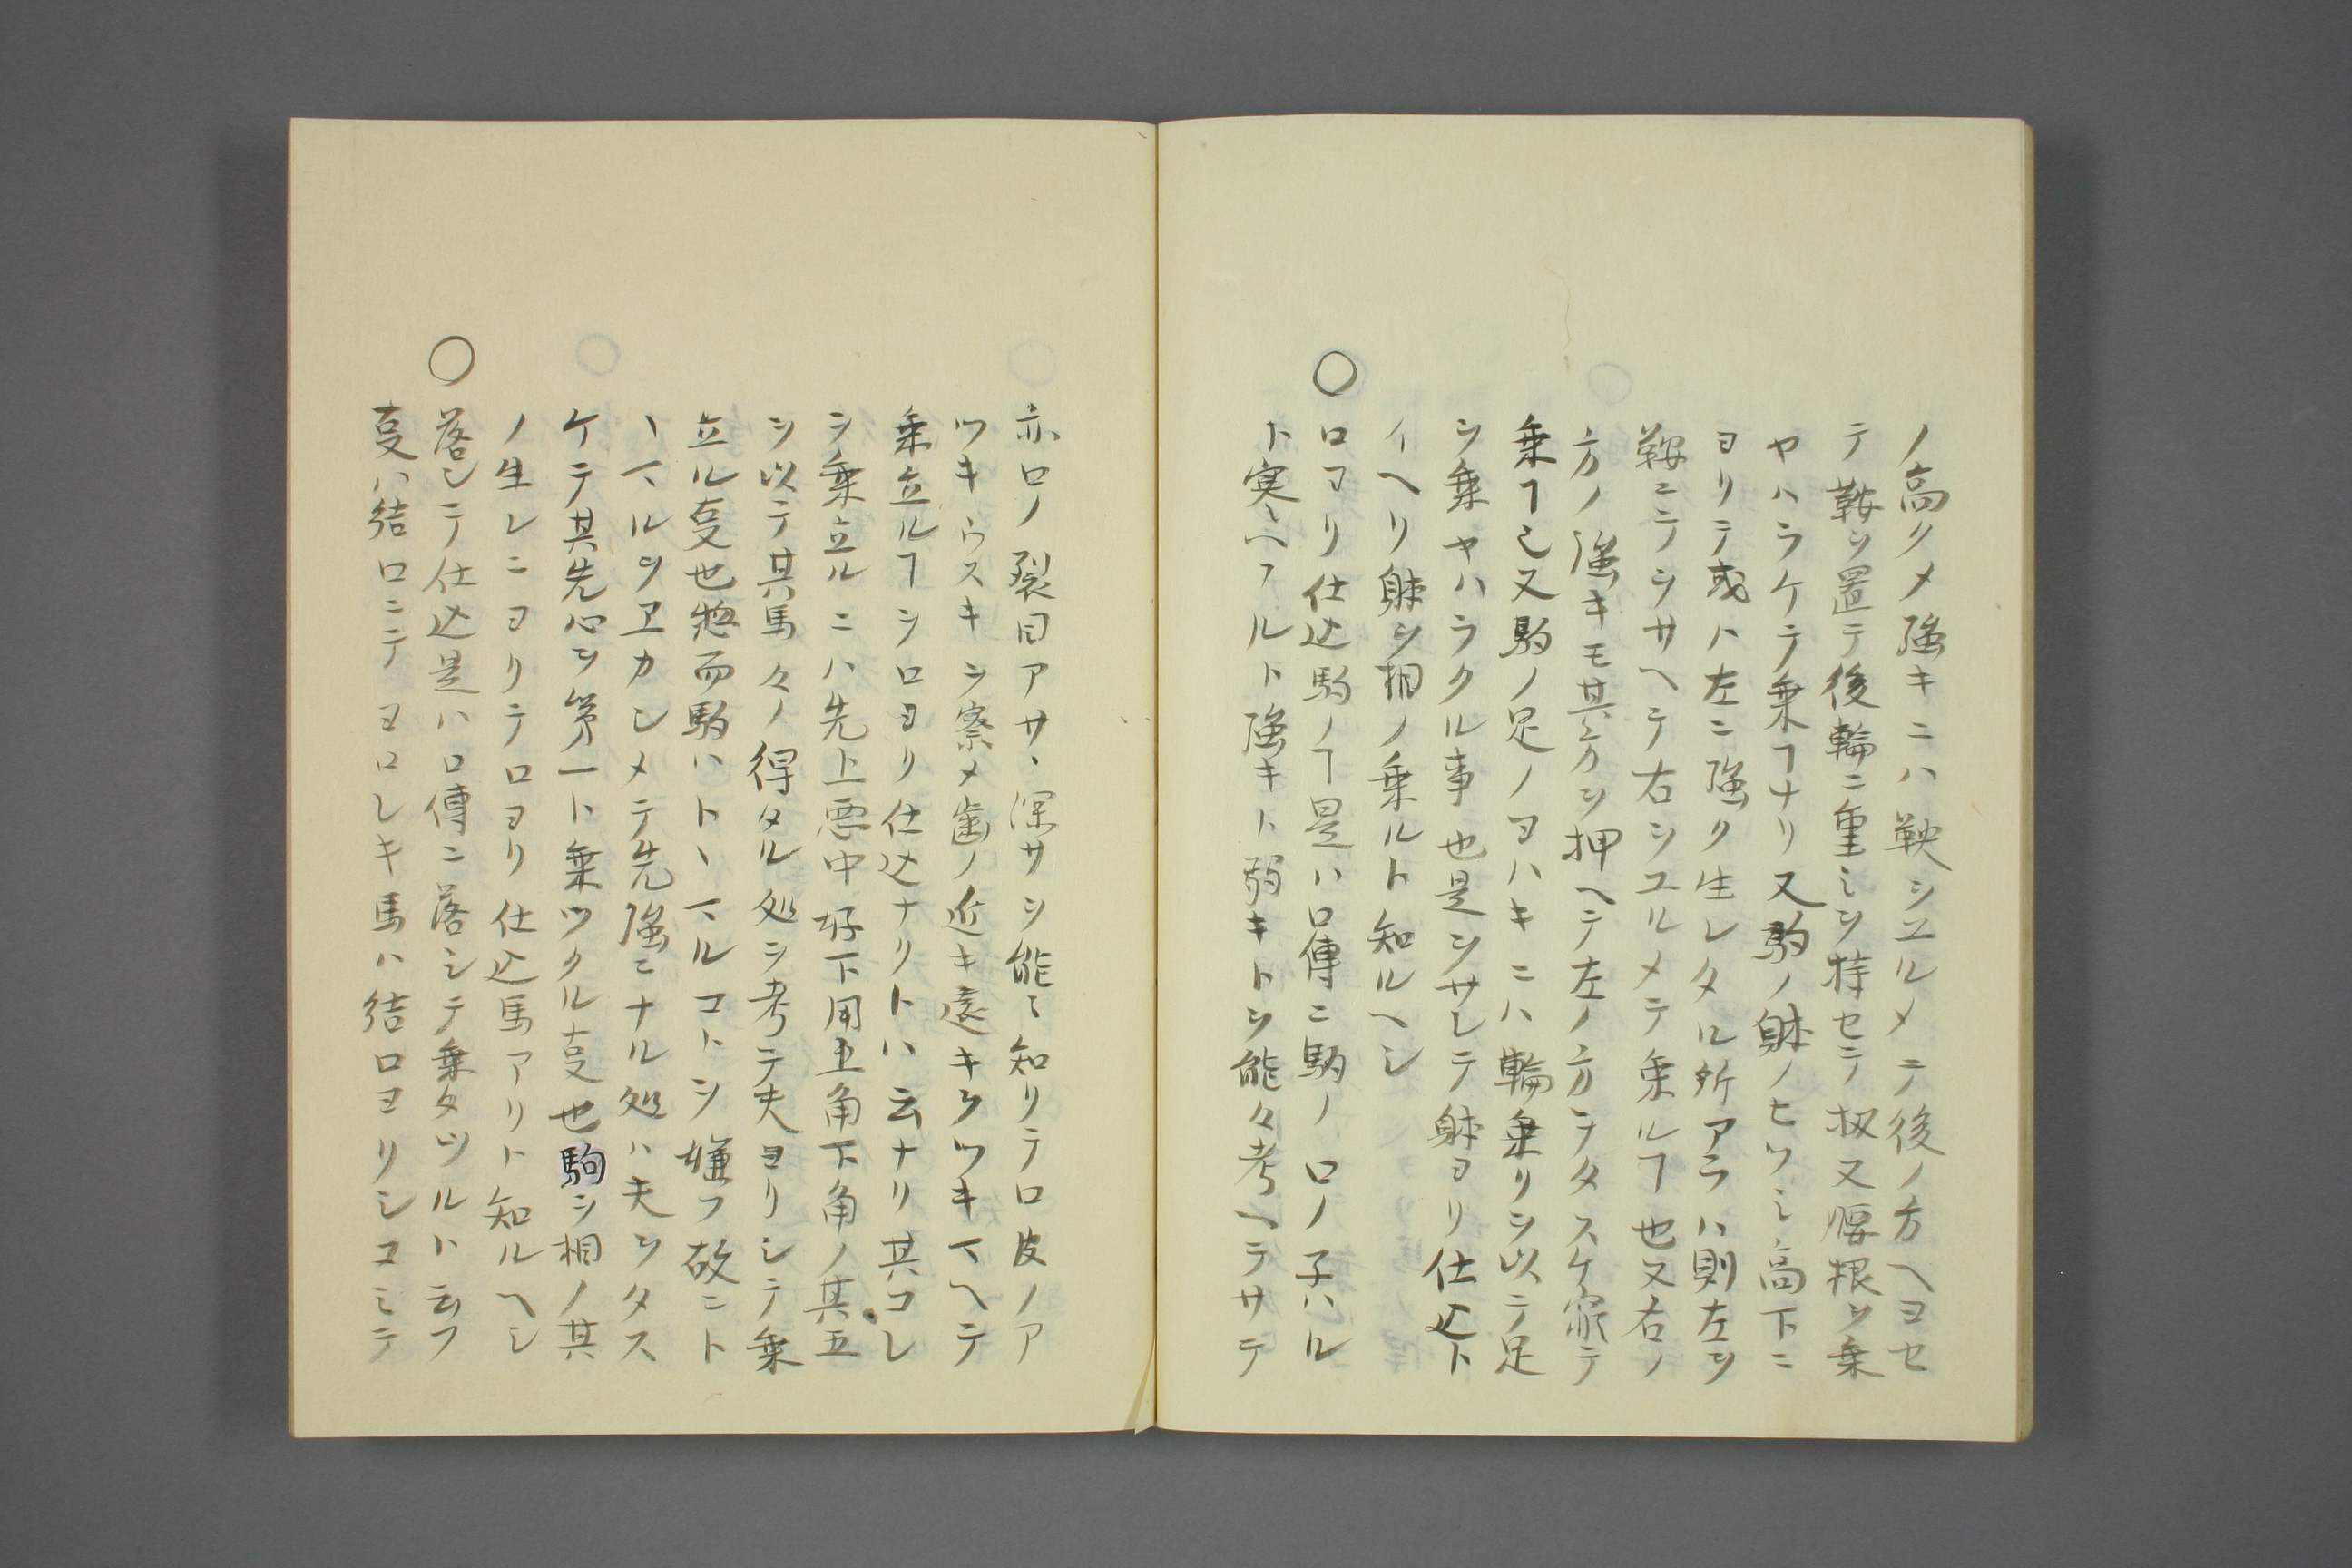 ノ高クメ強キニハ鞅ヲユルメテ後ノ方ヘヨセ
テ鞍ヲ置テ後輪ニ重ミヲ持セテ扨又腰根ヲ乗
ヤハラケテ乗ヿナリ又駒ノ躰ノヒツミ高下ニ
ヨリテ或ハ左ニ強ク生レタル所アラハ則左ヲ
鞍ニテヲサヘテ右ヲユルメテ乗ルヿ也又右ノ
方ノ強キモ其方ヲ押ヘテ左ノ方ヲタスケ テ
乗ヿ也又駒ノ足ノヨハキニハ輪乗リヲ以テ足
ヲ乗ヤハラクル事也是ヲサシテ躰ヨリ仕込ト
イヘリ躰ヲ相ノ乗ルト知ルヘシ
○口ヨリ仕込駒ノヿ是ハ口傳ニ駒ノ口ノ子ハル
ト寒ヘフルト強キト弱キトヲ能々考ヘテサテ
亦口ノ裂目アサ、深サヲ能〻知リテ口皮ノア
ツキウスキヲ察メ歯ノ近キ遠キヲツキマヘテ
乗立ルヿヲ口ヨリ仕込ナリトハ云ナリ其コレ
ヲ乗立ルニハ先上悪中好下用五角下角ノ其五
ヲ以テ其馬々ノ得タル処ヲ考テ夫ヨリシテ乗
立ル叓也惣而駒ハトヽマルコトヲ嫌フ故ニト
ヽマルヲヱカシメテ先強ニナル処ハ夫ヲタス
ケテ其先心ヲ第一ト乗ツクル叓也駒ヲ相ノ其
ノ生レニヨリテ口ヨリ仕込馬アリト知ルヘシ
○落シテ仕込是ハ口傳ニ落シテ乗タツルト云フ
叓ハ結口ニテヨロシキ馬ハ結口ヨリシコミテ